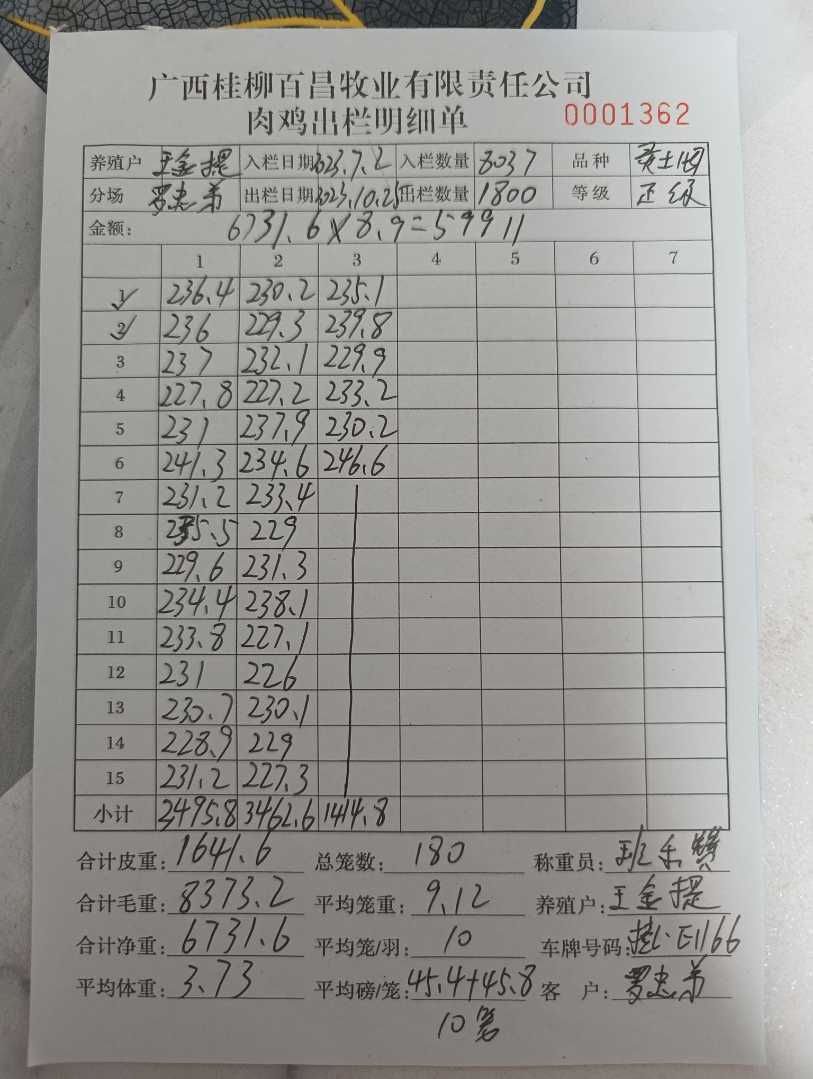 广西桂柳百昌牧业有限责任公司
肉鸡出栏明细单 0001362
养殖户 王金提 入栏日期 2023.7.2 入栏数量 8037 品种 黄土
分场 罗忠弟 出栏日期 2023.10.25 出栏数量 1800 等级 正级
金额: 6731.6×8.9=59911
1 2 3 4 5 6 7
1 236.4 230.2 235.1
2 236 229.3 239.8
3 237 232.1 229.9
4 227.8 227.2 233.2
5 231 237.9 230.2
6 241.3 234.6 246.6
7 231.2 233.4
8 235.5 229
9 229.6 231.3
10 234.4 238.1
11 233.8 227.1
12 231 226
13 230.7 230.1
14 228.9 229
15 231.2 227.3
小计 3495.8 3462.6 1414.8
合计皮重: 1641.6 总笼数: 180 称重员: 班
合计毛重: 8373.2 平均笼重: 9.12 养殖户: 王金提
合计净重: 6731.6 平均笼/羽: 10 车牌号码: 桂L·E1166
平均体重: 3.73 平均磅/笼: 45.4+45.8 客 户: 罗忠弟
10笼